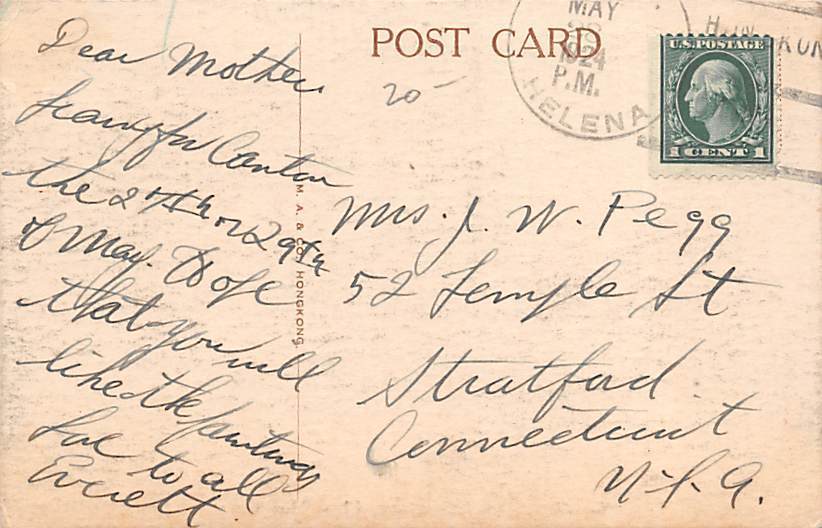 POST CARD
MAY
1924
P.M.
HELENA
U.S. POSTAGE
1 CENT 1
20-
Dear Mother
Leaving for Canton
the 27th or 29th
of May. Hope
that you will
like the
Love to all
Everett.
M. A. & CO. HONGKONG.
Mrs. J. W. Pegg
52 Temple St
Stratford
Connecticut
U.S.A.